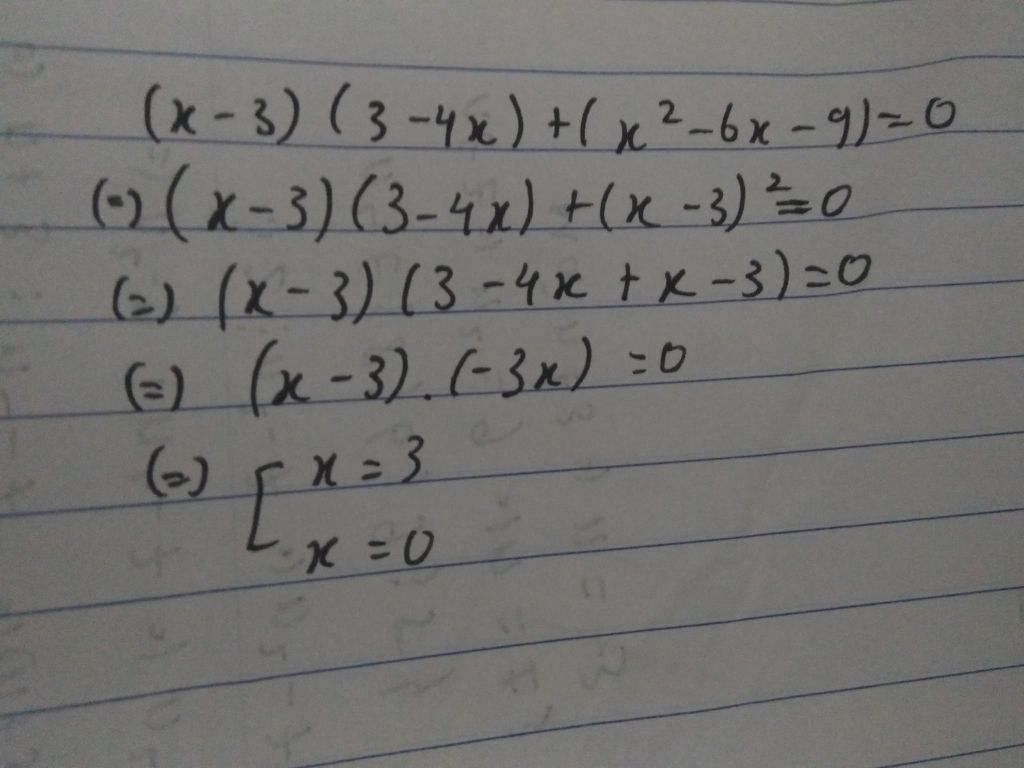 (x-3)(3-4x)+(x²-6x-9)=0
(=) (x-3)(3-4x)+(x-3)²=0
(=) (x-3)(3-4x+x-3)=0
(=) (x-3).(-3x)=0
(=) [ x=3
x=0